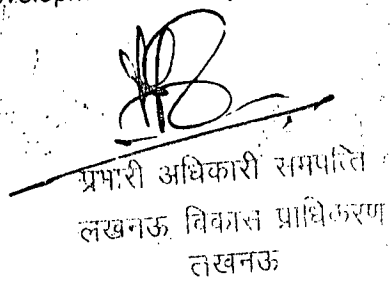 प्रभारी अधिकारी समपत्ति
लखनऊ विकास प्राधिकरण
लखनऊ